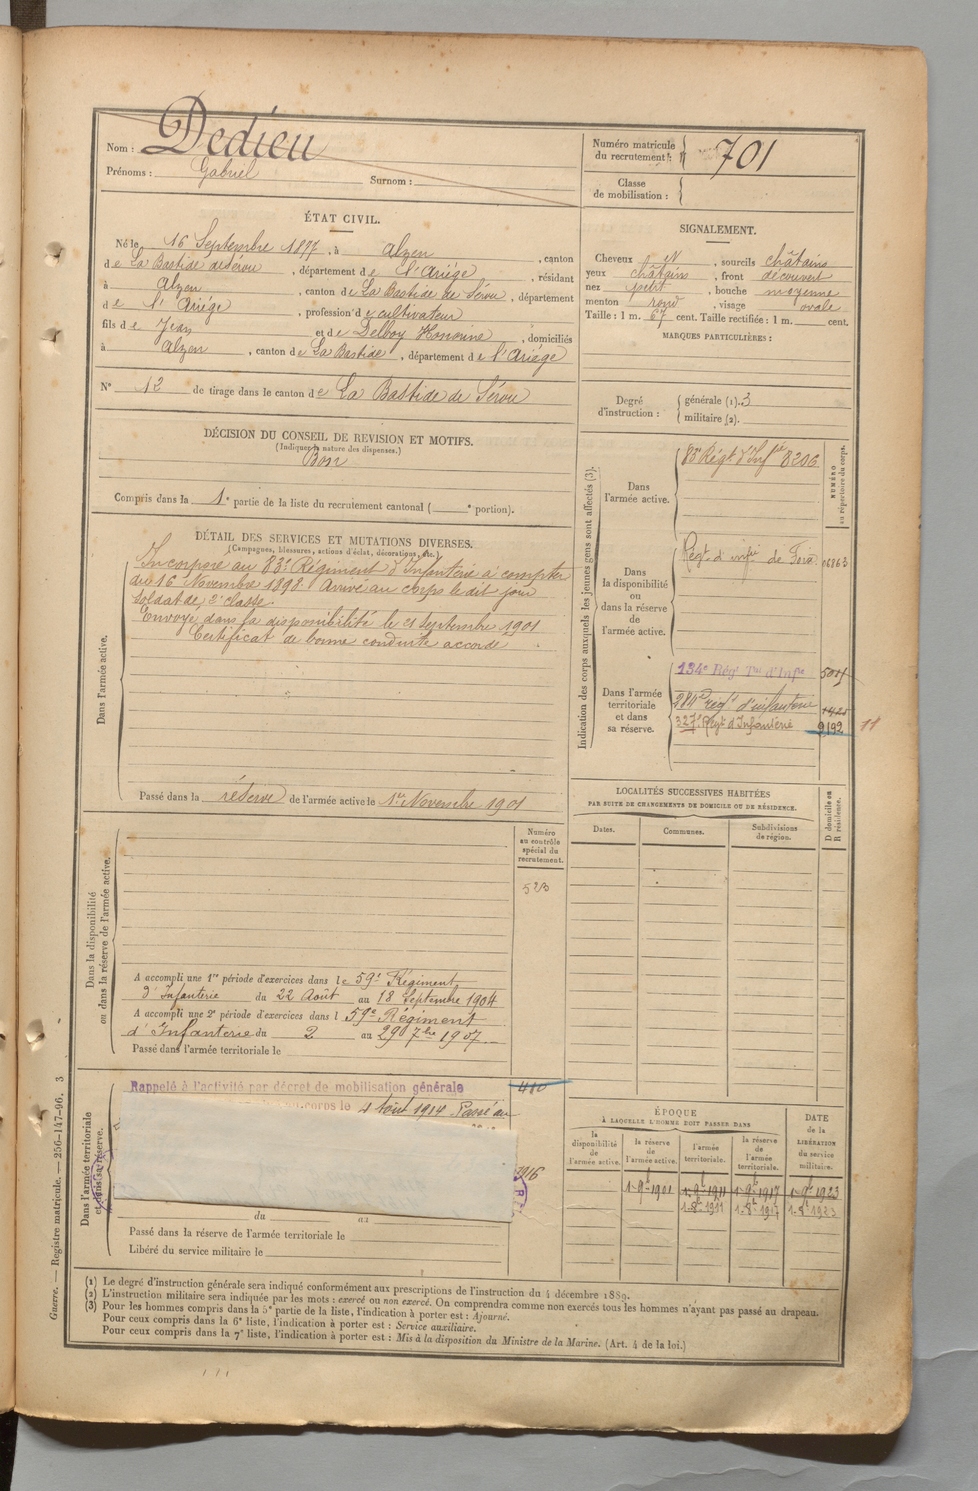 Nom : Dedieu
Prénoms : Gabriel Surnom :
Numéro matricule du recrutement : 701
Classe de mobilisation :
ÉTAT CIVIL.
Né le 16 Septembre 1877, à Alzen, canton
de La Bastide de Sérou, département de l'Ariége, résidant
à Alzen, canton de La Bastide de Sérou, département
de l'Ariége, profession de cultivateur
fils de Jean et de Delboy Honorine, domiciliés
à Alzen, canton de La Bastide, département de l'Ariége
N° 12 de tirage dans le canton de La Bastide de Sérou
SIGNALEMENT.
Cheveux N, sourcils châtains
yeux châtains, front découvert
nez petit, bouche moyenne
menton rond, visage ovale
Taille : 1 m. 67 cent. Taille rectifiée : 1 m. cent.
MARQUES PARTICULIÈRES :
Degré d'instruction : générale (1). 3
militaire (2).
DÉCISION DU CONSEIL DE REVISION ET MOTIFS.
(Indiquer la nature des dispenses.)
Bon
Compris dans la 1e partie de la liste du recrutement cantonal ( e portion).
DÉTAIL DES SERVICES ET MUTATIONS DIVERSES.
(Campagnes, blessures, actions d'éclat, décorations, etc.)
Dans l'armée active.
Incorporé au 83e Régiment d'Infanterie à compter
du 16 Novembre 1898. Arrivé au corps le dit jour
soldat de 2e classe.
Envoyé dans la disponibilité le 21 Septembre 1901
Certificat de bonne conduite accordé
Passé dans la réserve de l'armée active le 1er Novembre 1901
Indication des corps auxquels les jeunes gens sont affectés (3).
NUMÉRO au répertoire du corps.
Dans l'armée active.
83e Régt d'Infrie 8206
Dans la disponibilité ou dans la réserve de l'armée active.
Régt d'infie de Foix 06863
Dans l'armée territoriale et dans sa réserve.
134e Régt Tal d'Infie 5001
284e régt d'infanterie
327e Régt d'Infanterie 9192 11
LOCALITÉS SUCCESSIVES HABITÉES
PAR SUITE DE CHANGEMENTS DE DOMICILE OU DE RÉSIDENCE.
Dates. Communes. Subdivisions de région. D domicile ou R résidence.
Dans la disponibilité ou dans la réserve de l'armée active.
Numéro au contrôle spécial du recrutement.
523
A accompli une 1re période d'exercices dans le 59e Régiment
d'Infanterie du 22 Août au 18 Septembre 1904
A accompli une 2e période d'exercices dans l 59e Régiment
d'Infanterie du 2 au 29 7bre 1907
Passé dans l'armée territoriale le
Dans l'armée territoriale et dans sa réserve.
Rappelé à l'activité par décret de mobilisation générale
au corps le 4 Août 1914 Passé au
1916
du au
Passé dans la réserve de l'armée territoriale le
Libéré du service militaire le
ÉPOQUE
À LAQUELLE L'HOMME DOIT PASSER DANS
la disponibilité de l'armée active.
la réserve de l'armée active.
l'armée territoriale.
la réserve de l'armée territoriale.
DATE de la LIBÉRATION du service militaire.
1-9-1901 1-9-1911 1-9-1917 1-9-1923
1-8-1911 1-8-1917 1-8-1923
(1) Le degré d'instruction générale sera indiqué conformément aux prescriptions de l'instruction du 4 décembre 1889.
(2) L'instruction militaire sera indiquée par les mots : exercé ou non exercé. On comprendra comme non exercés tous les hommes n'ayant pas passé au drapeau.
(3) Pour les hommes compris dans la 5e partie de la liste, l'indication à porter est : Ajourné.
Pour ceux compris dans la 6e liste, l'indication à porter est : Service auxiliaire.
Pour ceux compris dans la 7e liste, l'indication à porter est : Mis à la disposition du Ministre de la Marine. (Art. 4 de la loi.)
Guerre. — Registre matricule. — 256-147-96. 3